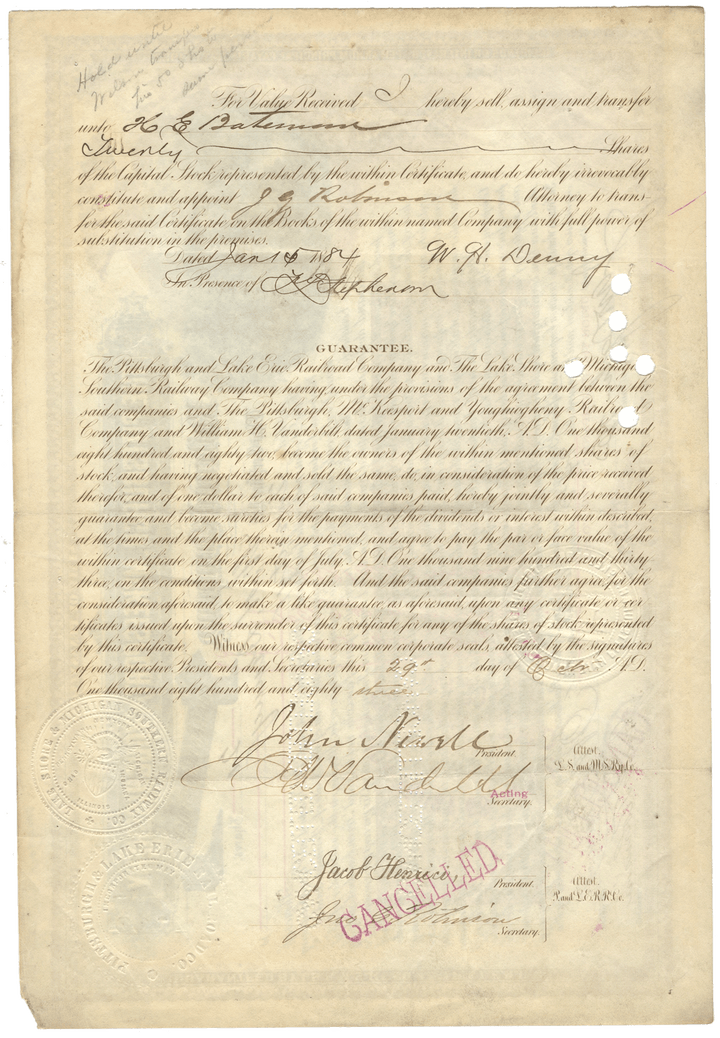 Hold until
Wilson
For Value Received I hereby sell, assign and transfer
unto H E Bateman
Twenty Shares
of the Capital Stock represented by the within Certificate, and do hereby irrevocably
constitute and appoint J G Robinson Attorney to trans-
fer the said Certificate on the Books of the within named Company with full power of
substitution in the premises.
Dated Jan 15 1884 W. H. Denny
In Presence of Stephenson
GUARANTEE.
The Pittsburgh and Lake Erie Railroad Company and The Lake Shore and Michigan
Southern Railway Company having, under the provisions of the agreement between the
said companies and The Pittsburgh, Mc Keesport and Youghiogheny Railroad
Company and William H. Vanderbilt, dated January twentieth, A.D. One thousand
eight hundred and eighty two, become the owners of the within mentioned shares of
stock, and having negotiated and sold the same, do, in consideration of the price received
therefor, and of one dollar to each of said companies paid, hereby jointly and severally
guarantee and become sureties for the payments of the dividends or interest within described,
at the times and the place therein mentioned, and agree to pay the par or face value of the
within certificate on the first day of July, A.D. One thousand nine hundred and thirty-
three, on the conditions within set forth. And the said companies further agree, for the
consideration aforesaid, to make a like guarantee, as aforesaid, upon any certificate or cer-
tificates issued upon the surrender of this certificate for any of the shares of stock represented
by this certificate. Witness our respective common corporate seals, attested by the signatures
of our respective Presidents and Secretaries this 29th day of Octr. A.D.
One thousand eight hundred and eighty three
John Newell President. Attest,
L. S. and M. S. Ry. Co.
Vanderbilt Acting
Secretary.
LAKE SHORE & MICHIGAN SOUTHERN RAILWAY CO.
ILLINOIS
Jacob Henrici President. Attest,
P. and L. E. R. R. Co.
CANCELLED
Jno. G. Robinson Secretary.
PITTSBURGH & LAKE ERIE RAILROAD CO.